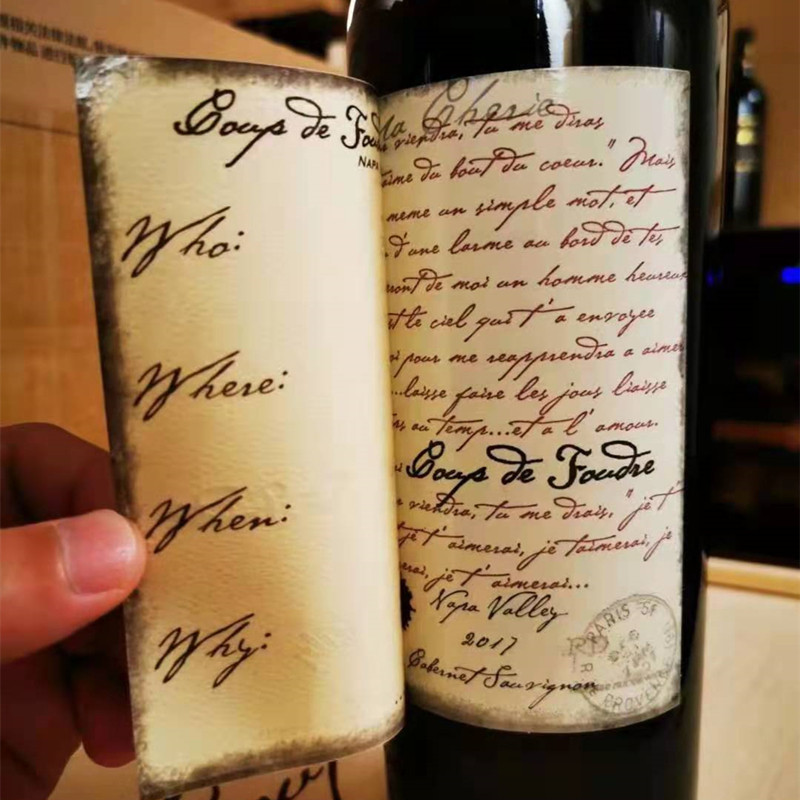 Coup de Fou
NAPA
Who:
Where:
When:
Why:
Ma Cherie
viendra, tu me diras
aime du bout du coeur." Mais
meme un simple mot, et
d'une larme au bord de tes
ront de moi un homme heureux
st le ciel qui t'a envoyee
pour me reapprendra a aimer
...laisse faire les jous liaisse
au temp...et a l'amour.
Coup de Foudre
viendra, tu me drais, "je t'
je t'aimerai, je taimerai, je
erai, je t'aimerai...
Napa Valley
2017
Cabernet Sauvignon
PARIS 5E
PROVENCE